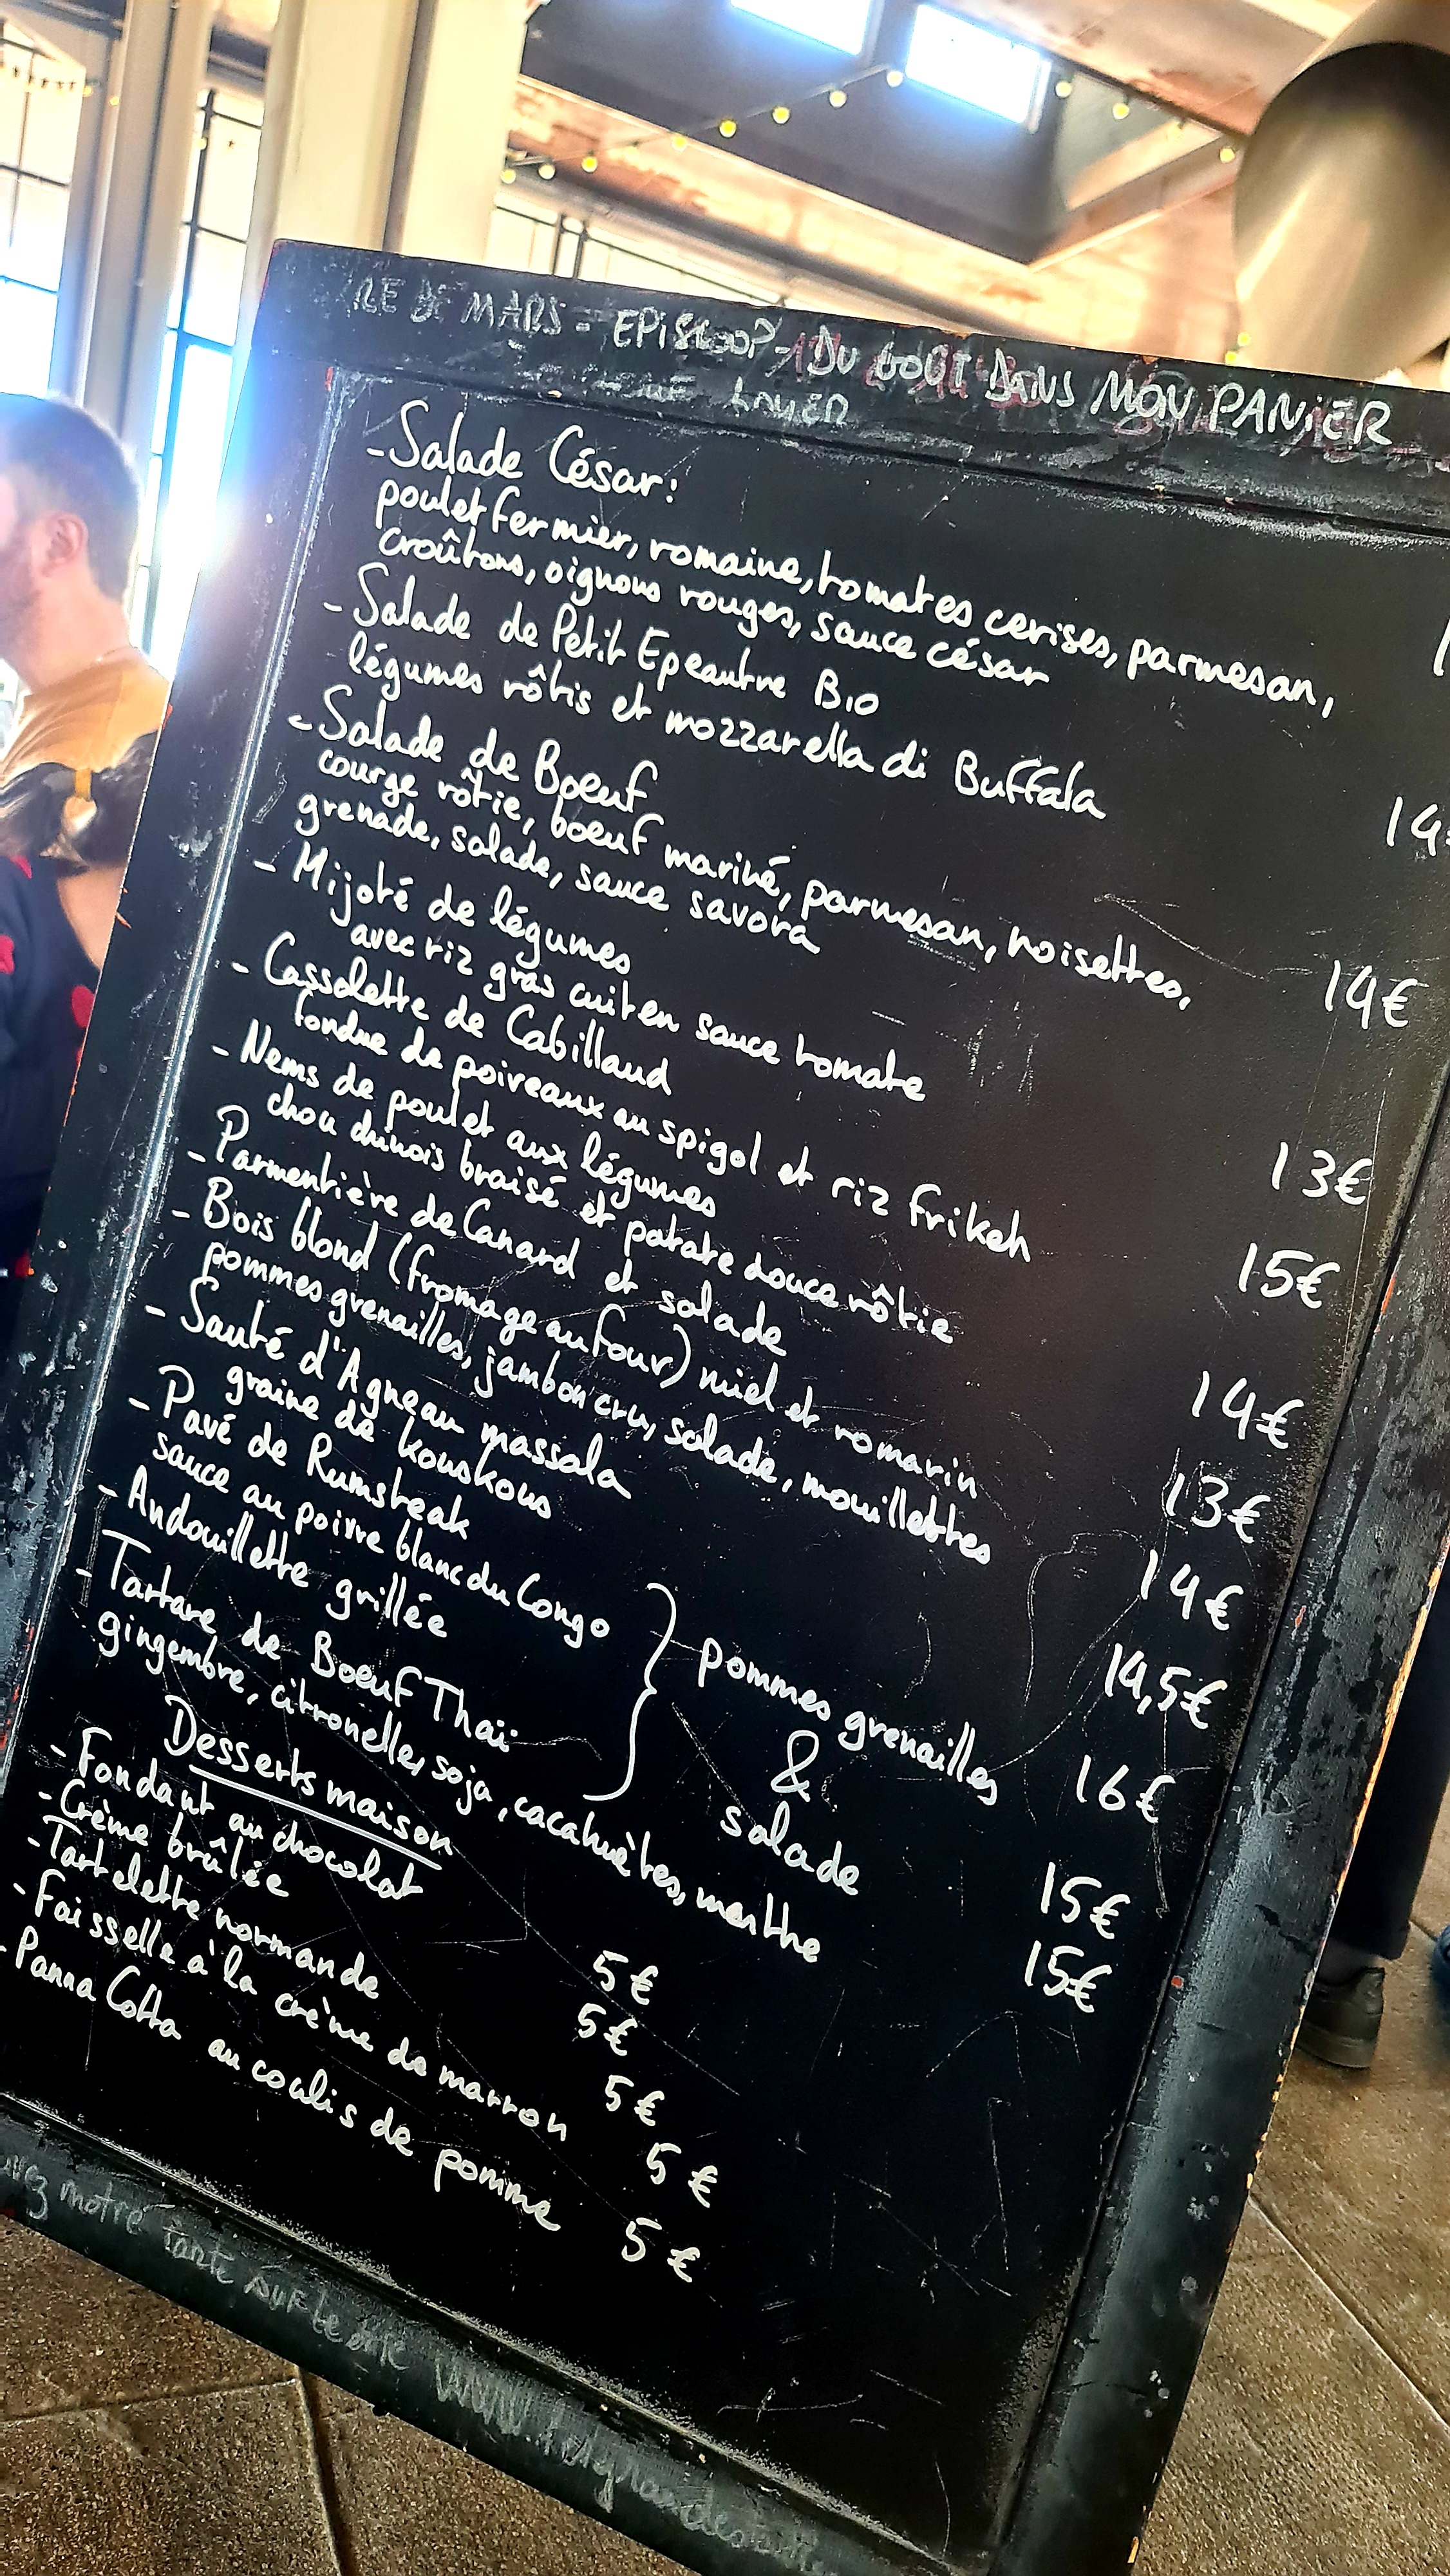 DE MARS - EPISCOOP - DU GOÛT DANS MON PANIER
- Salade César: 1
poulet fermier, romaine, tomates cerises, parmesan,
croûtons, oignons rouges, sauce césar
- Salade de Petit Epeautre Bio 14
légumes rôtis et mozzarella di Buffala
- Salade de Boeuf 14€
courge rôtie, boeuf mariné, parmesan, noisettes,
grenade, salade, sauce savora
- Mijoté de légumes 13€
avec riz gras cuit en sauce tomate
- Cassolette de Cabillaud 15€
fondue de poireaux au spigol et riz frikeh
- Nems de poulet aux légumes 14€
chou chinois braisé et patate douce rôtie
- Parmentière de Canard et salade 13€
- Bois blond (fromage au four) miel et romarin 14€
pommes grenailles, jambon cru, salade, mouillettes
- Sauté d'Agneau massala 14,5€
graine de kouskous
- Pavé de Rumsteak 16€
sauce au poivre blanc du Congo
- Andouillette grillée 15€
- Tartare de Boeuf Thaï 15€
gingembre, citronelle, soja, cacahuètes, menthe
pommes grenailles
&
salade
Desserts maison
- Fondant au chocolat 5€
- Crème brûlée 5€
- Tartelette normande 5€
- Faisselle à la crème de marron 5€
- Panna Cotta au coulis de pomme 5€
notre carte sur le site www.